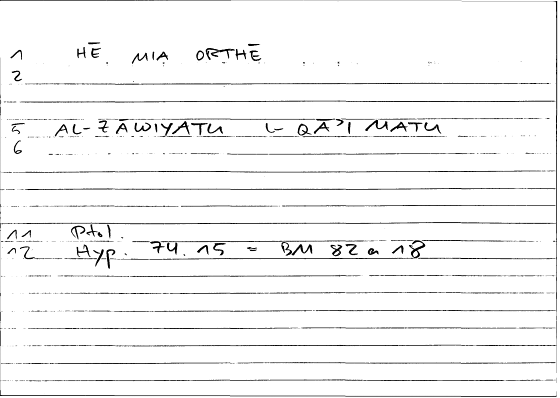 1 HĒ. MIA ORTHĒ
2
5 AL-ZĀWIYATU L-QĀ'IMATU
6
11 Ptol.
12 Hyp. 74.15 = BM 82 a 18